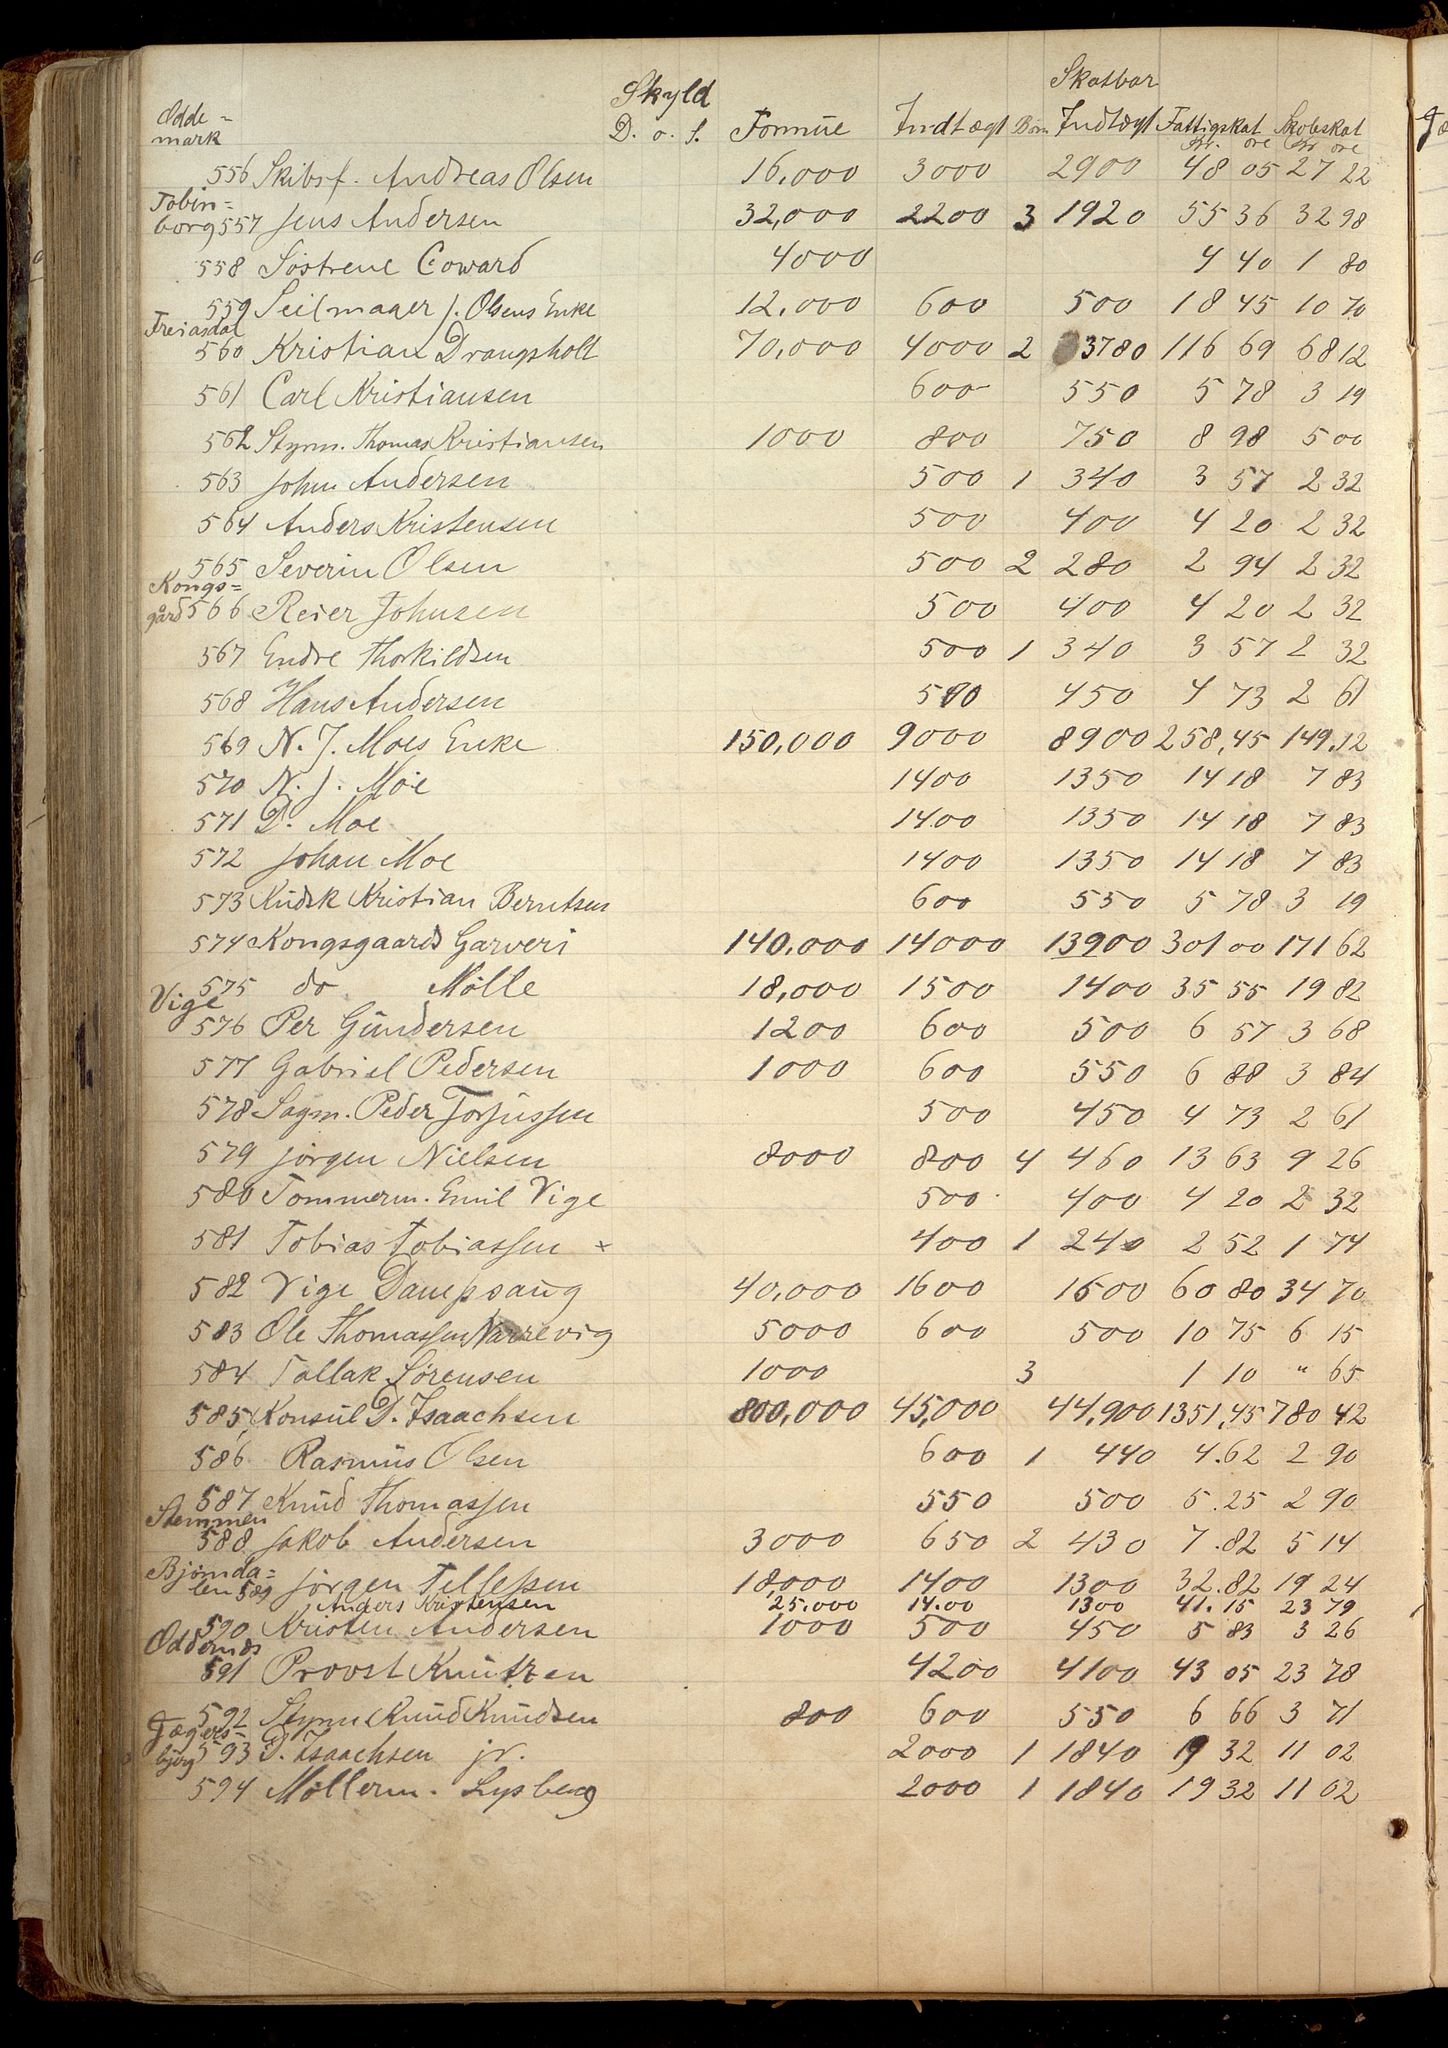 Skyld Skatbar
Odde=
mark D. o. S. Formue Indtægt Børn Indtægt Fattigskat Skoleskat
Kr. øre Kr øre
556 Skibsf. Andreas Olsen 16,000 3000 2900 48 05 27 22
Tobin=
borg 557 Jens Andersen 32,000 2200 3 1920 55 36 32 98
558 Søstrene Coward 4000 4 40 1 80
559 Seilmager J. Olsens Enke 12,000 600 500 18 45 10 70
Freiasdal
560 Kristian Drangsholt 70,000 4000 2 3780 116 69 68 12
561 Carl Kristiansen 600 550 5 78 3 19
562 Styrm. Thomas Kristiansen 1000 800 750 8 98 5 00
563 John Andersen 500 1 340 3 57 2 32
564 Anders Kristensen 500 400 4 20 2 32
565 Severin Olsen 500 2 280 2 94 2 32
Kongs=
gård 566 Reier Johnsen 500 400 4 20 2 32
567 Endre Thorkildsen 500 1 340 3 57 2 32
568 Hans Andersen 500 450 4 73 2 61
569 N. J. Moes Enke 150,000 9000 8900 258,45 149,12
570 N. J. Moe 1400 1350 14 18 7 83
571 D. Moe 1400 1350 14 18 7 83
572 Johan Moe 1400 1350 14 18 7 83
573 Kudsk Kristian Berntsen 600 550 5 78 3 19
574 Kongsgaards Garveri 140,000 14000 13900 301 00 171 62
575 do Mølle 18,000 1500 1400 35 55 19 82
Vige
576 Per Gundersen 1200 600 500 6 57 3 68
577 Gabriel Pedersen 1000 600 550 6 88 3 84
578 Sagm. Peder Torjussen 500 450 4 73 2 61
579 Jörgen Nielsen 8000 800 4 460 13 63 9 26
580 Tømmerm. Emil Vige 500 400 4 20 2 32
581 Tobias Tobiassen × 400 1 240 2 52 1 74
582 Vige Dampsaug 40,000 1600 1500 60 80 34 70
583 Ole Thomassen Narrevig 5000 600 500 10 75 6 15
584 Tallak Sørensen 1000 3 1 10 " 65
585, Konsul D. Isaachsen 800,000 45,000 44,900 1351,45 780 42
586 Rasmus Olsen 600 1 440 4.62 2 90
587 Knud Thomassen 550 500 5.25 2 90
Stemmen
588 Jakob Andersen 3000 650 2 430 7.82 5 14
Bjørnda=
len 589 Jörgen Tellefsen 18,000 1400 1300 32.82 19 24
Anders Kristensen 25.000 14.00 1300 41.15 23 79
590 Kristen Andersen 1000 500 450 5 83 3 26
Oddernæs
591 Provst Knutzen 4200 4100 43 05 23 78
592 Styrm Knud Knudsen 800 600 550 6 66 3 71
Jægers=
bjerg 593 D. Isaachsen jr. 2000 1 1840 19 32 11 02
594 Møllerm. Lysberg 2000 1 1840 19 32 11 02